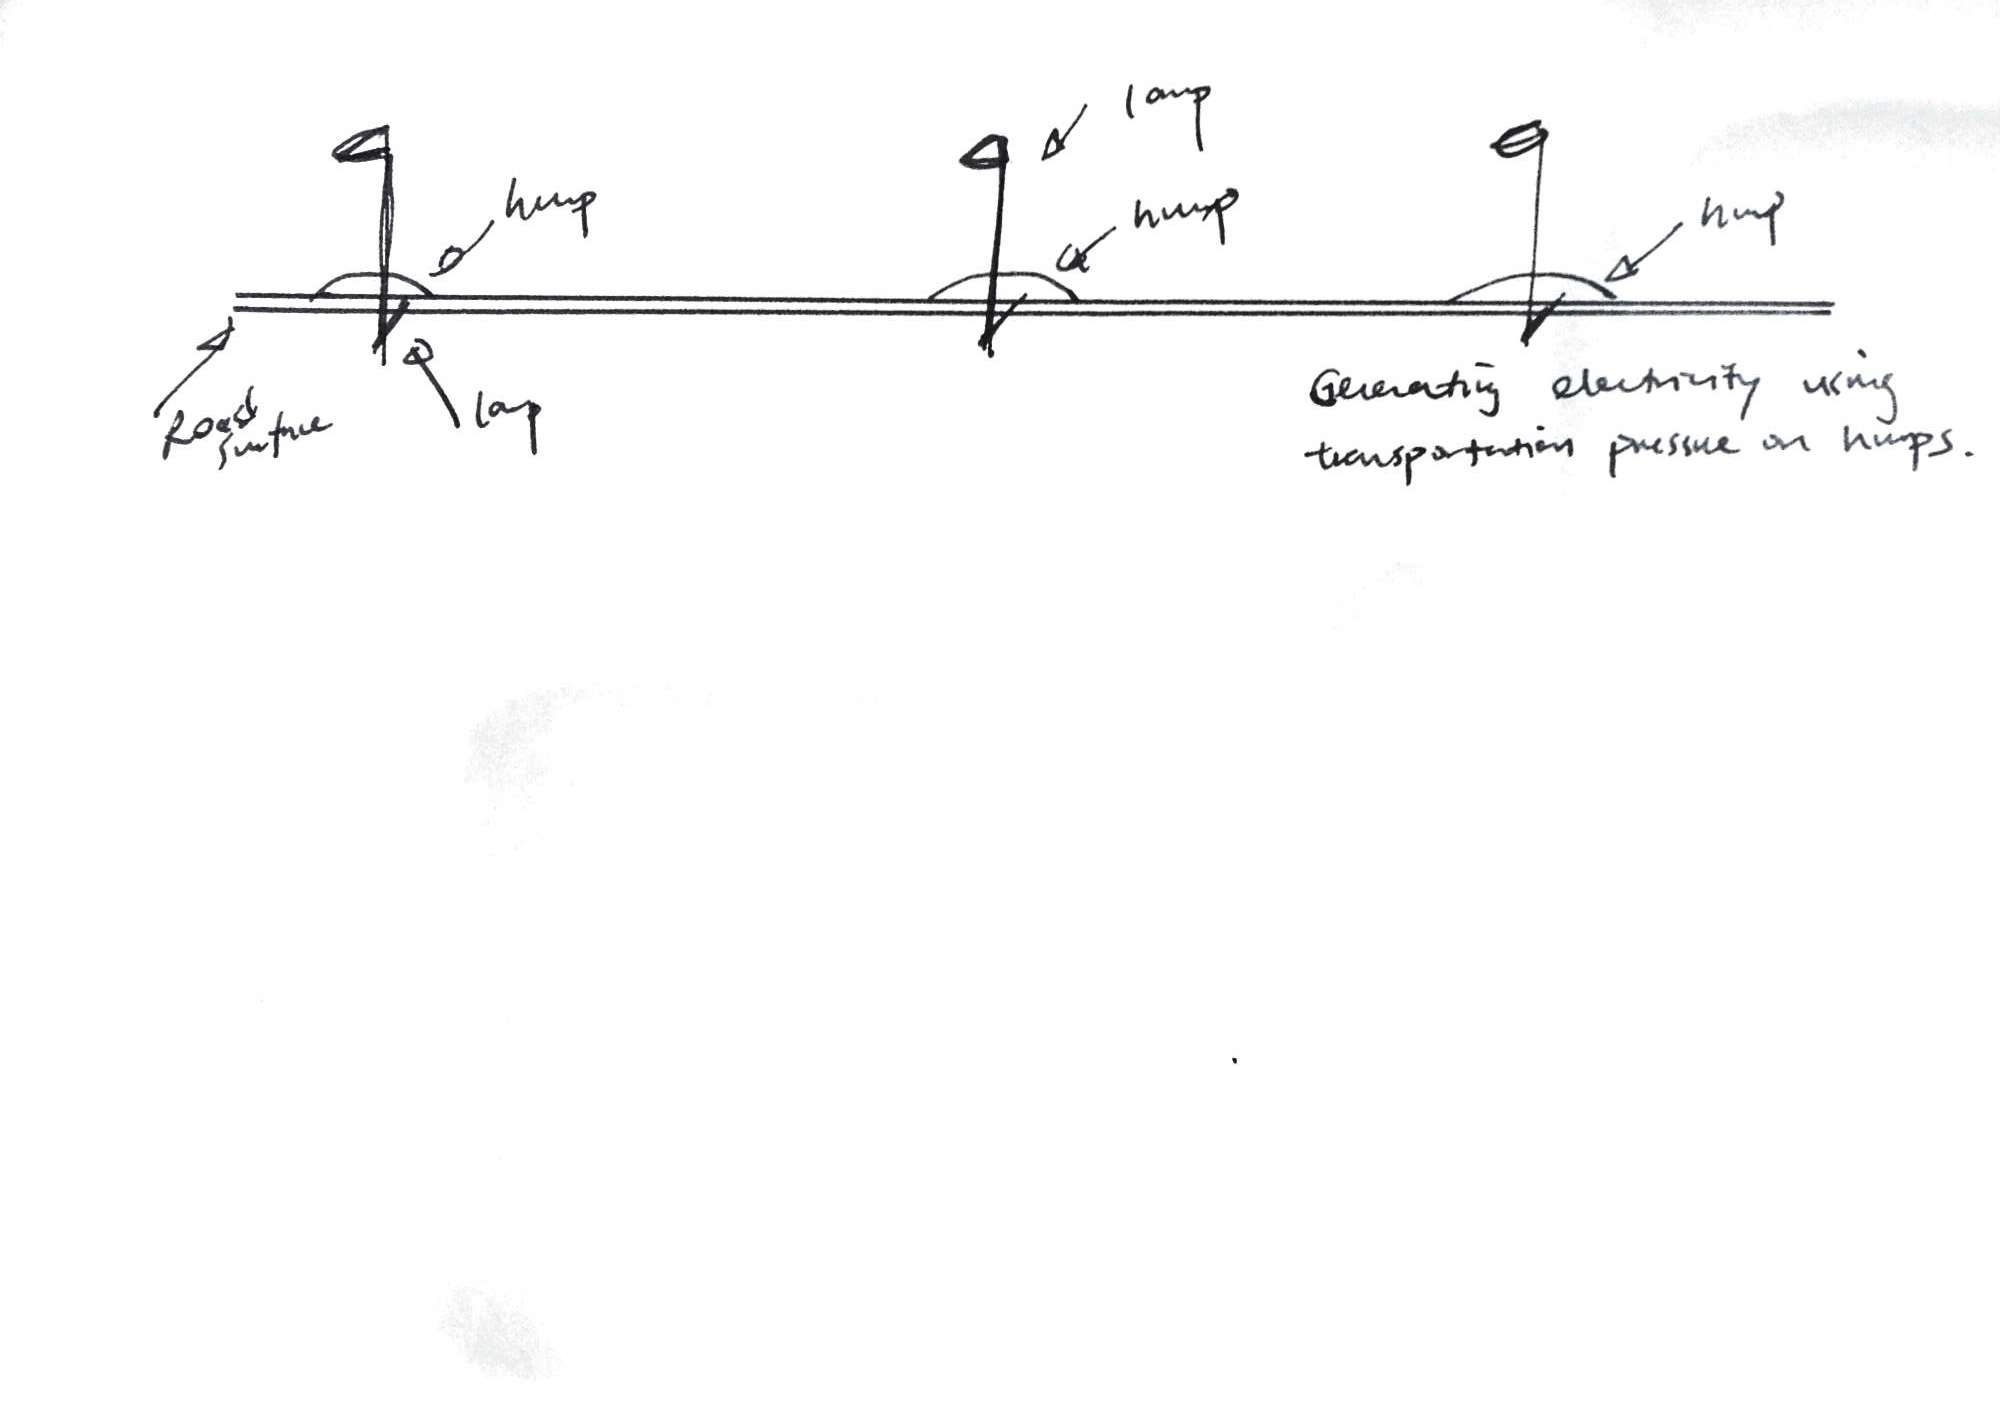 lamp
hump
hump
hump
Road
surface
lamp
Generating electricity using
transportation pressure on humps.